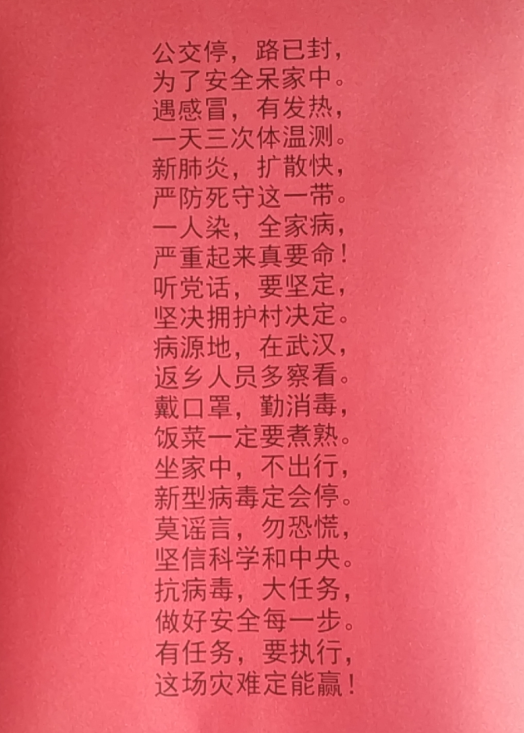 公交停，路已封，
为了安全呆家中。
遇感冒，有发热，
一天三次体温测。
新肺炎，扩散快，
严防死守这一带。
一人染，全家病，
严重起来真要命！
听党话，要坚定，
坚决拥护村决定。
病源地，在武汉，
返乡人员多察看。
戴口罩，勤消毒，
饭菜一定要煮熟。
坐家中，不出行，
新型病毒定会停。
莫谣言，勿恐慌，
坚信科学和中央。
抗病毒，大任务，
做好安全每一步。
有任务，要执行，
这场灾难定能赢！